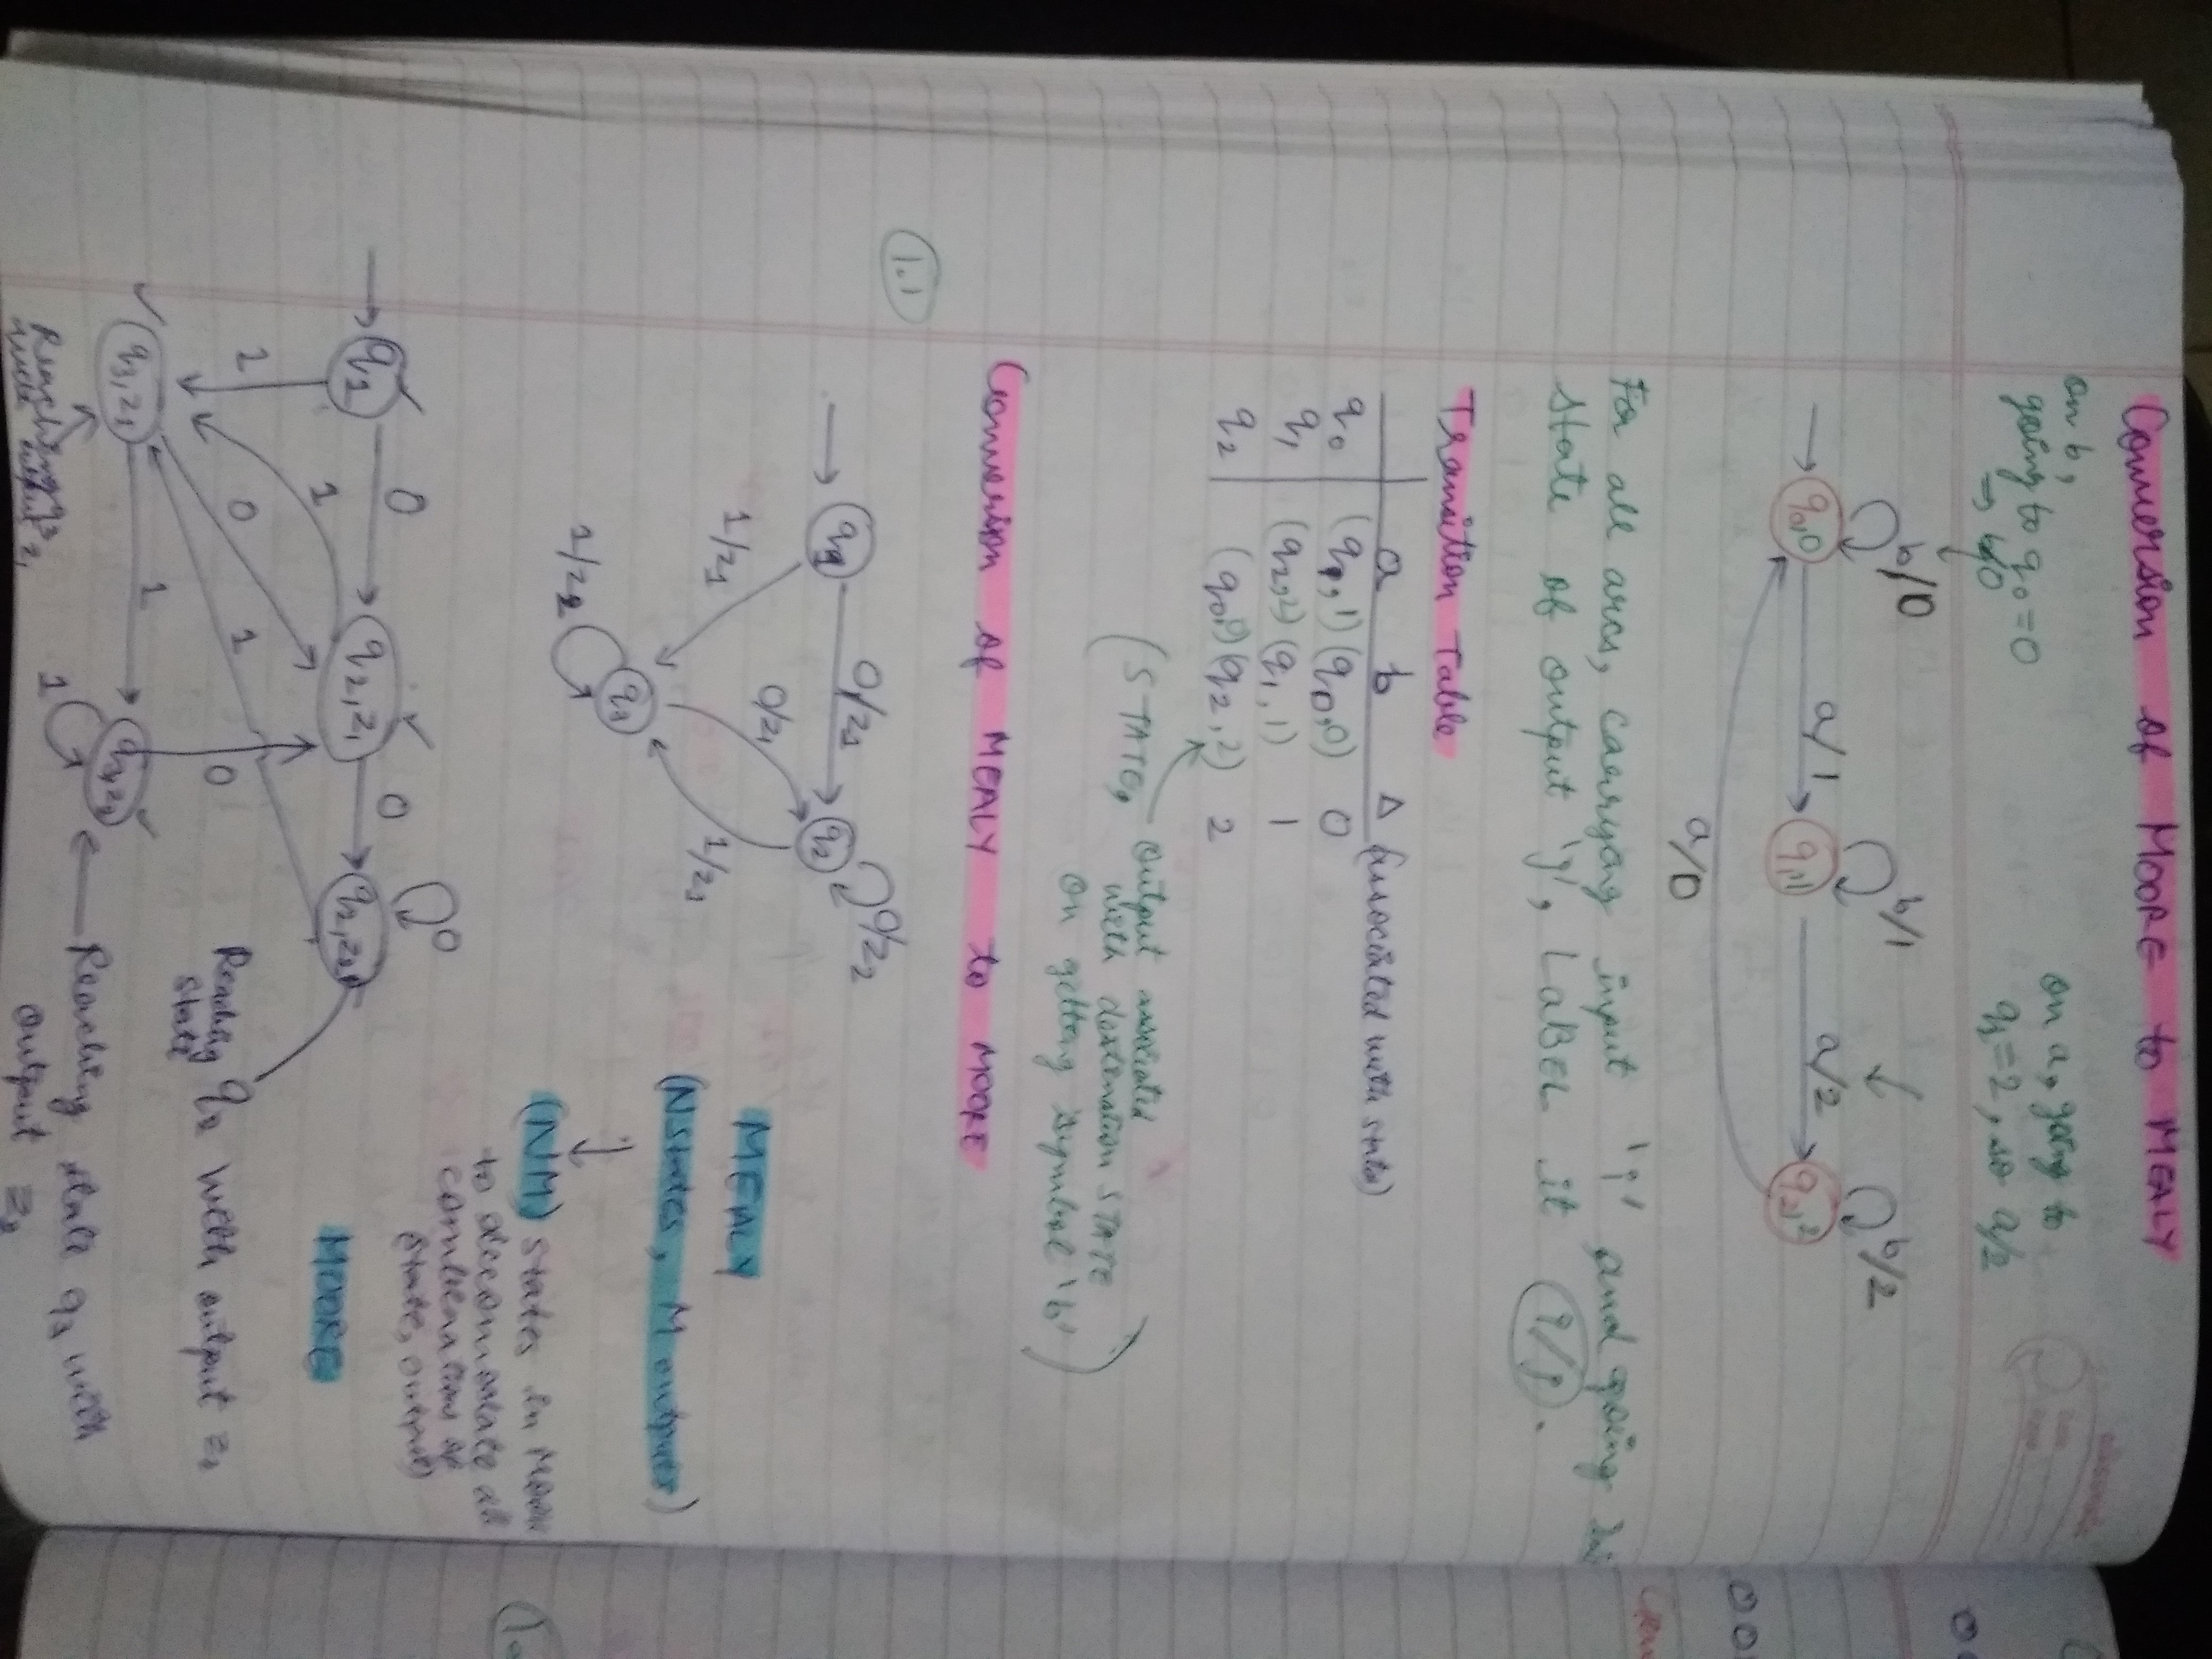 Conversion of MOORE to MEALY
on b,
going to q0 = 0
⇒ b/0
on a, going to
q1 = 2, so a/2
b/0
b/1
b/2
q0,0
a/1
q1,1
a/2
q2,2
a/0
For all arcs, carrying input 'q' and going in
state of output 'j', LaBEL it q/j.
Transition Table
a b Δ (associated with state)
q0 (q1, 1) (q0, 0) 0
q1 (q2, 2) (q1, 1) 1
q2 (q0, 0) (q2, 2) 2
(STATE, output associated
with destination STATE
on getting symbol 'b')
1.1
Conversion of MEALY to MOORE
q1
0/z1
q2
0/z2
1/z1
0/z1
1/z1
q3
1/z2
MEALY
(N states, M outputs)
↓
(NM) states in Moore
to accommodate all
combinations of
(state, output)
MOORE
q1
0
q2, z1
0
q2, z2
0
1
1
0
1
q3, z1
1
q3, z2
1
0
Reaching q3
with output z1
Reaching q2 with output z2
state
Reaching state q3 with
output z2